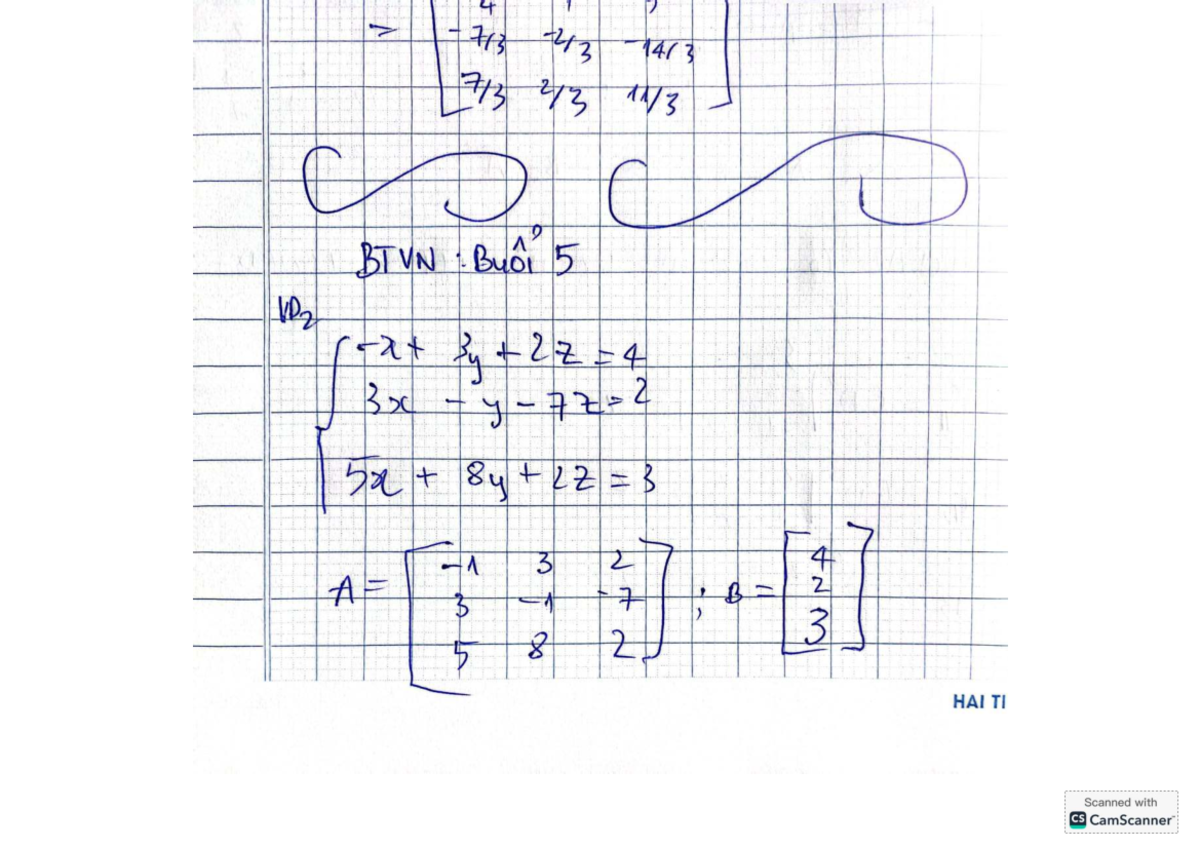 => -7/3 -2/3 -14/3
7/3 2/3 11/3
BTVN : Buổi 5
VD2
-x + 3y + 2z = 4
3x - y - 7z = 2
5x + 8y + 2z = 3
A = [ -1 3 2 ; B = [ 4
3 -1 -7 2
5 8 2 ] 3 ]
HAI TI
Scanned with
CS CamScanner